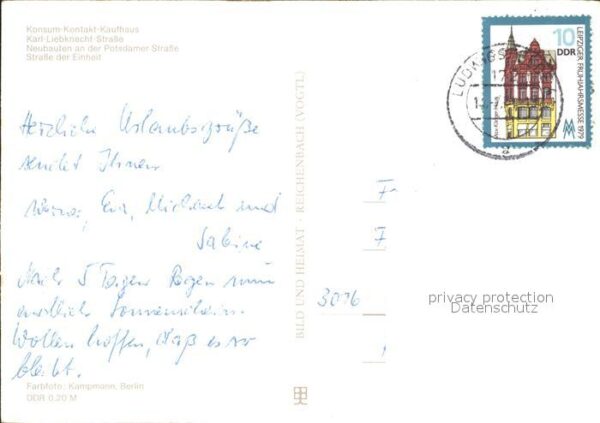 Konsum-Kontakt-Kaufhaus
Karl-Liebknecht-Straße
Neubauten an der Potsdamer Straße
Straße der Einheit
Herzliche Urlaubsgrüße
sendet Ihnen
Eva, Michael und
Sabine
Nach 5 Tagen Regen nun
endlich Sonnenschein.
Wollen hoffen, daß es so
bleibt.
Farbfoto: Kampmann, Berlin
DDR 0,20 M
BILD UND HEIMAT · REICHENBACH (VOGTL)
10
DDR
LEIPZIGER FRÜHJAHRSMESSE 1979
LUDWIGS
17
a
F
F
3016
privacy protection
Datenschutz